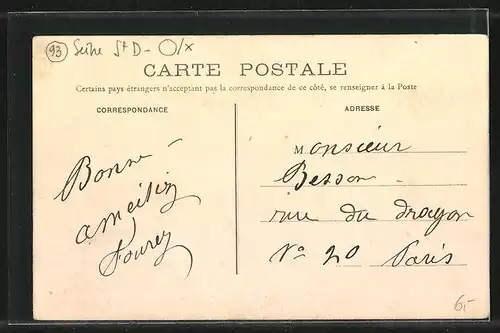 93 Seine St D-
CARTE POSTALE
Certains pays étrangers n'acceptant pas la correspondance de ce côté, se renseigner à la Poste
CORRESPONDANCE
Bonne
ADRESSE
Monsieur
Besson
rue du dragon
No 20 Paris
6.-